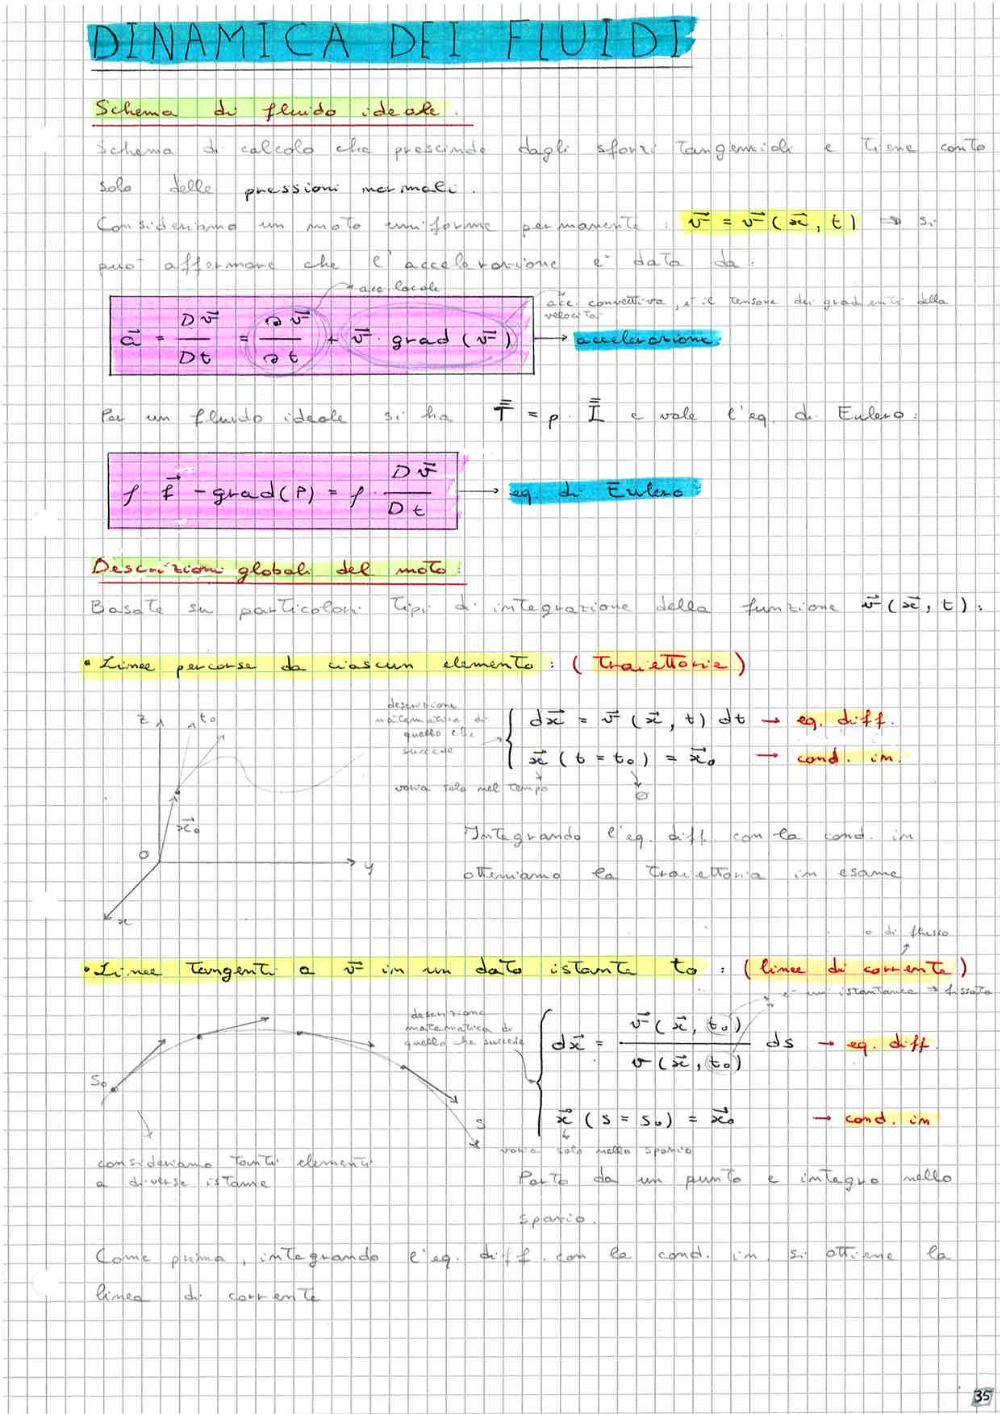 DINAMICA DEI FLUIDI
Schema di fluido ideale.
Schema di calcolo che prescinde dagli sforzi tangenziali e tiene conto
solo delle pressioni normali.
Consideriamo un moto uniforme permanente : v⃗ = v⃗ (x⃗, t) → si
può affermare che l'accelerazione è data da:
acc. locale
acc. convettiva, è il tensore dei gradienti della
velocità
a⃗ = Dv⃗/Dt = ∂v⃗/∂t + v⃗ · grad (v⃗) → accelerazione.
Per un fluido ideale si ha T̿ = p · I̿ e vale l'eq. di Eulero:
ρ f⃗ - grad(p) = ρ · Dv⃗/Dt → eq. di Eulero
Descrizioni globali del moto:
Basate su particolari tipi di integrazione della funzione v⃗(x⃗, t):
• Linee percorse da ciascun elemento : (traiettorie)
z t₀
descrizione
matematica di
quello che
succede
dx⃗ = v⃗ (x⃗, t) dt → eq. diff.
x⃗ (t = t₀) = x⃗₀ → cond. in.
varia solo nel tempo
0
x⃗₀
O
y
x
Integrando l'eq. diff. con la cond. in
otteniamo la traiettoria in esame
o di flusso
• Linee tangenti a v⃗ in un dato istante t₀ : (linee di corrente)
è un istantanea → fissato
descrizione
matematica di
quello che succede
dx⃗ = v⃗(x⃗, t₀)/v(x⃗, t₀) ds → eq. diff.
S₀
S
x⃗ (s = s₀) = x⃗₀ → cond. in
varia solo nello spazio
consideriamo tanti elementi
a diverse istante
Parto da un punto e integro nello
spazio.
Come prima, integrando l'eq. diff. con la cond. in. si ottiene la
linea di corrente
35